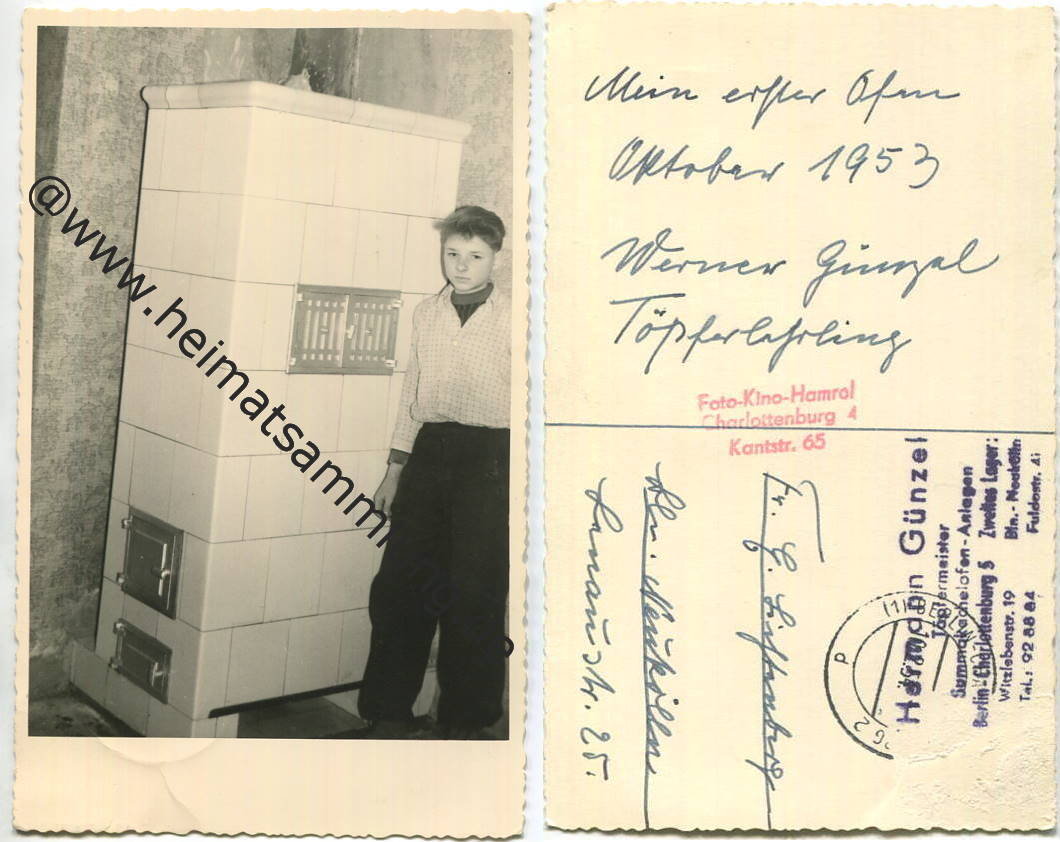 @www.heimatsamm
Mein erster Ofen
Oktober 1953
Werner Günzel
Töpferlehrling
Foto-Kino-Hamrol
Charlottenburg 4
Kantstr. 65
Fr. G. Lichtenberg
Bln. Neukölln
Lenaustr. 25.
Hermann Günzel
Töpfermeister
Summakachelofen-Anlagen
Berlin-Charlottenburg 5 Zweites Lager:
Witzlebenstr. 19 Bln.-Neukölln
Tel.: 92 88 84 Fuldastr.
(1) BERLIN